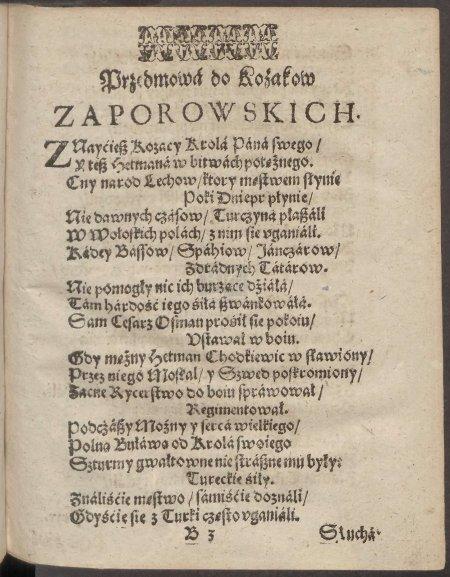 Przedmowá do Kozakow
ZAPOROWSKICH.
ZNayćiesz Kozacy Krolá Páná swego /
Y tesz Hetmaná w bitwách potężnego.
Cny narod Lechow / ktory męstwem słynie
Poki Dniepr płynie /
Nie dawnych czásow / Turczyná płaszáli
W Wołoskich polách / z nim się vganiáli.
Kądey Bássow / Spáhiow / Jánczárow /
Zdradnych Tátárow.
Nie pomogły nic ich burzące dźiáłá /
Tám hárdość iego śiłá szwánkowáłá.
Sam Cesarz Osman prośił się pokoiu /
Vstawał w boiu.
Gdy mężny Hetman Chodkiewic wsławióny /
Przez niego Moskal / y Szwed poskromiony /
Zacne Rycerstwo do boiu spráwował /
Regimentował.
Podczászy Możny y sercá wielkiego /
Polną Buławę od Krolá swoiego
Szturmy gwałtowne nie strászne mu były:
Tureckie śiły.
Ználiśćie męstwo / sámiśćie doználi /
Gdyśćie się z Turki często vganiáli.
B 3 Słuchá-